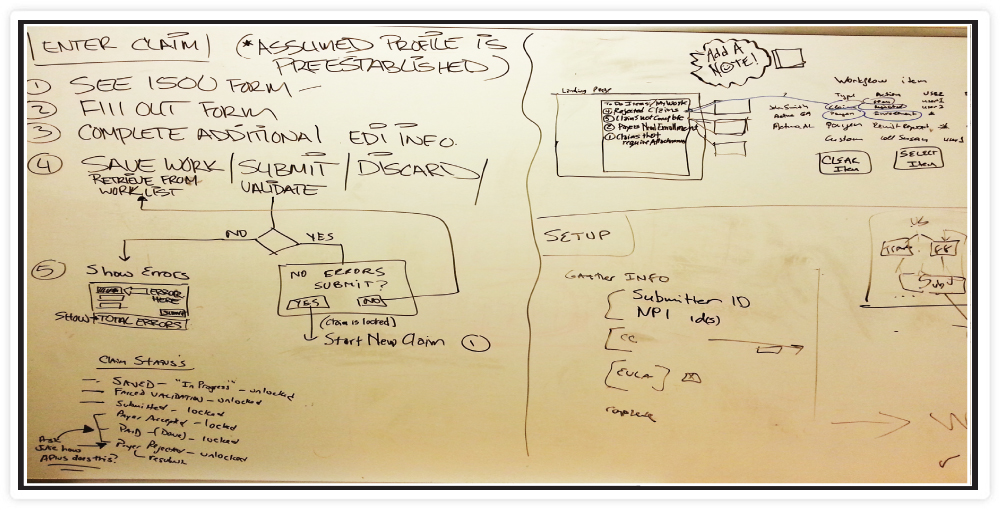 ENTER CLAIM (*ASSUMED PROFILE IS
PREESTABLISHED)
① SEE 1500 FORM –
② FILL OUT FORM
③ COMPLETE ADDITIONAL EDI INFO.
④ SAVE WORK / SUBMIT / DISCARD /
RETRIEVE FROM VALIDATE
WORK LIST
NO YES
⑤ Show Errors
ERROR
HERE
SHOW TOTAL ERRORS
NO ERRORS
SUBMIT?
YES NO
(Claim is locked)
Start New Claim ①
CLAIM STATUS'S
SAVED – "In Progress" – unlocked
FAILED VALIDATION – unlocked
Submitted – locked
Payer Accepted – locked
PAID – (Done) – locked
Payer Rejected – unlocked
resubmit
Ask
how
does this?
Add A
NOTE!
Landing Page
To Do Items/My Work
④ Rejected Claims
③ Claims Not Complete
② Payers Enrollment
① Claims that
require Attachment
Workflow item
Type Action USER
John Smith Claim user1
user2
Payer Enrollment *
Payer
Custom user1
CLEAR
Item
SELECT
Item
SETUP
Gather INFO
Submitter ID
NPI id(s)
CC
[EULA]
W